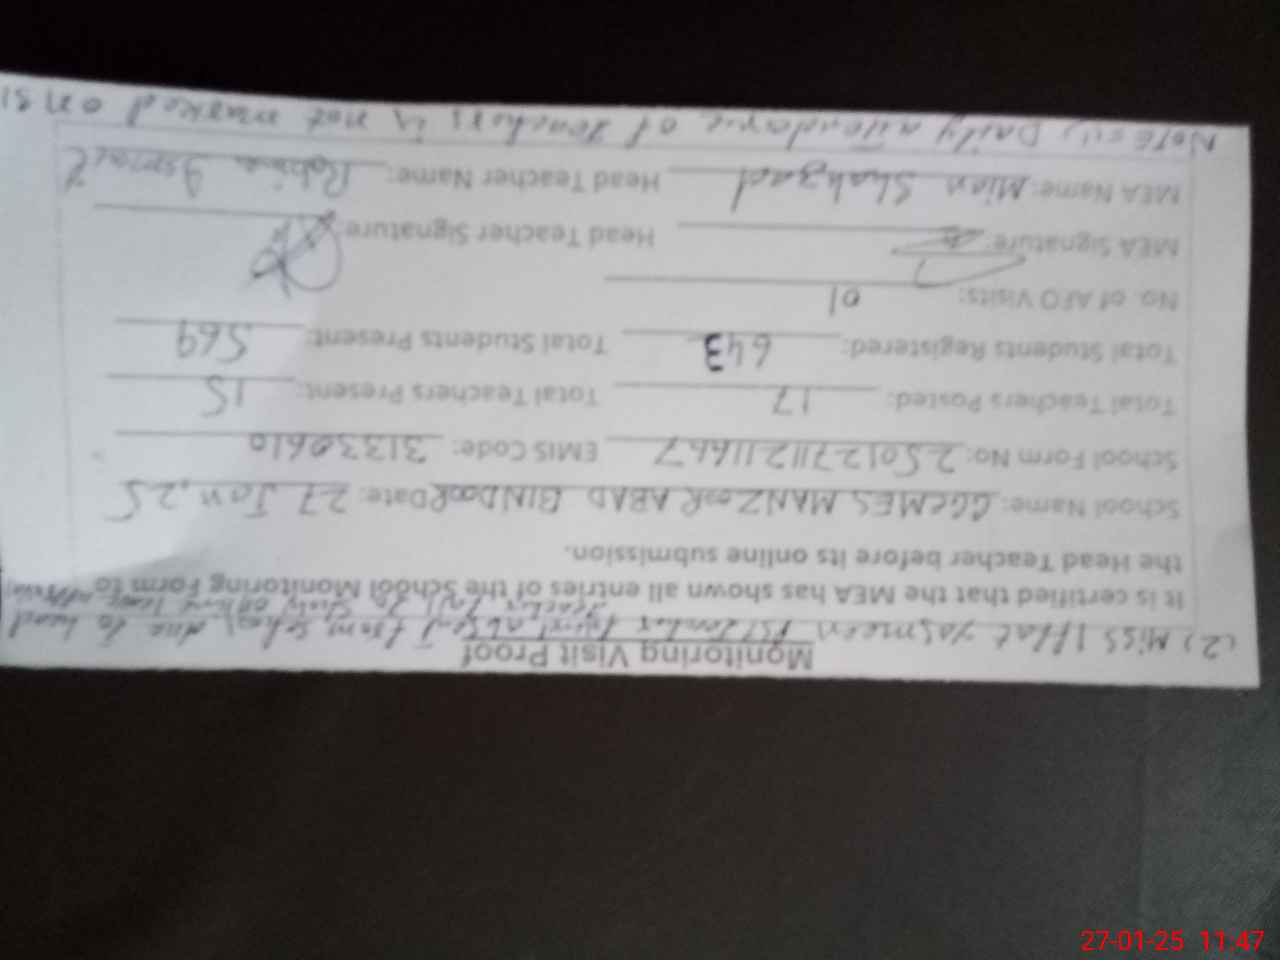 (2) Miss Iffat Yasmeen PST Teacher absent from school due to head
Monitoring Visit Proof
Teacher to
It is certified that the MEA has shown all entries of the School Monitoring Form to
the Head Teacher before its online submission.
School Name: GGCMES MANZOOR ABAD BINDOOR Date: 27 Jan, 25
School Form No: EMIS Code: 31330610
Total Teachers Posted: 17 Total Teachers Present: 15
Total Students Registered: 643 Total Students Present: 569
No. of AEO Visits: 01
MEA Signature: Head Teacher Signature:
MEA Name: Mian Shahzad Head Teacher Name: Robina Ismail
Note :- (1) Daily attendance of Teachers is not marked on SI
27-01-25 11:47